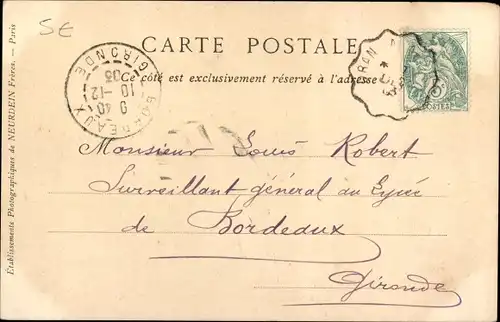 5E
CARTE POSTALE
Ce côté est exclusivement réservé à l'adresse
BORDEAUX GIRONDE
9 40
10 -12
03
POSTES
Monsieur Louis Robert
Surveillant général au Lycée
de Bordeaux
Gironde
Établissements Photographiques de NEURDEIN Frères. — Paris